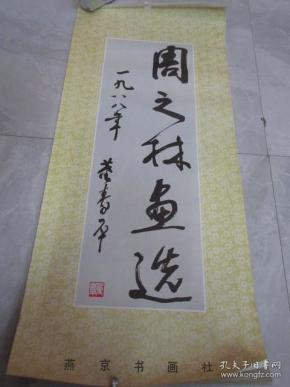 周之林画选
一九八八年
董寿平
燕京书画社
孔夫子旧书网